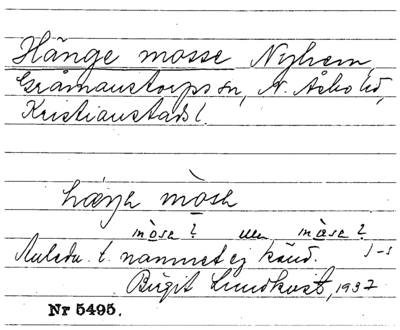 Hänge mosse Nyhem,
Gråmanstorps sn, N. Åsbo hd,
Kristianstads l.
hæŋə mòsə
mòsə? mɑ̀sə?
Anledn. t. namnet ej känd. J-s
Birgit Lundkvist, 1937
Nr 5495.